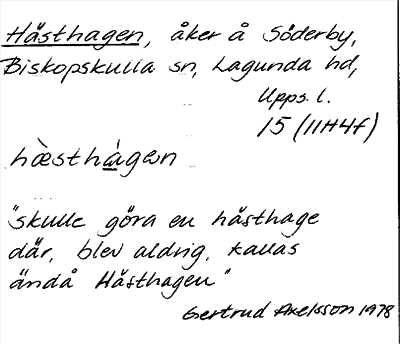 Hästhagen, åker å Söderby,
Biskopskulla sn, Lagunda hd,
Upps. l.
15 (11H4f)
hæ̀sthàgen
"skulle göra en hästhage
där, blev aldrig, kallas
ändå Hästhagen"
Gertrud Axelsson 1978